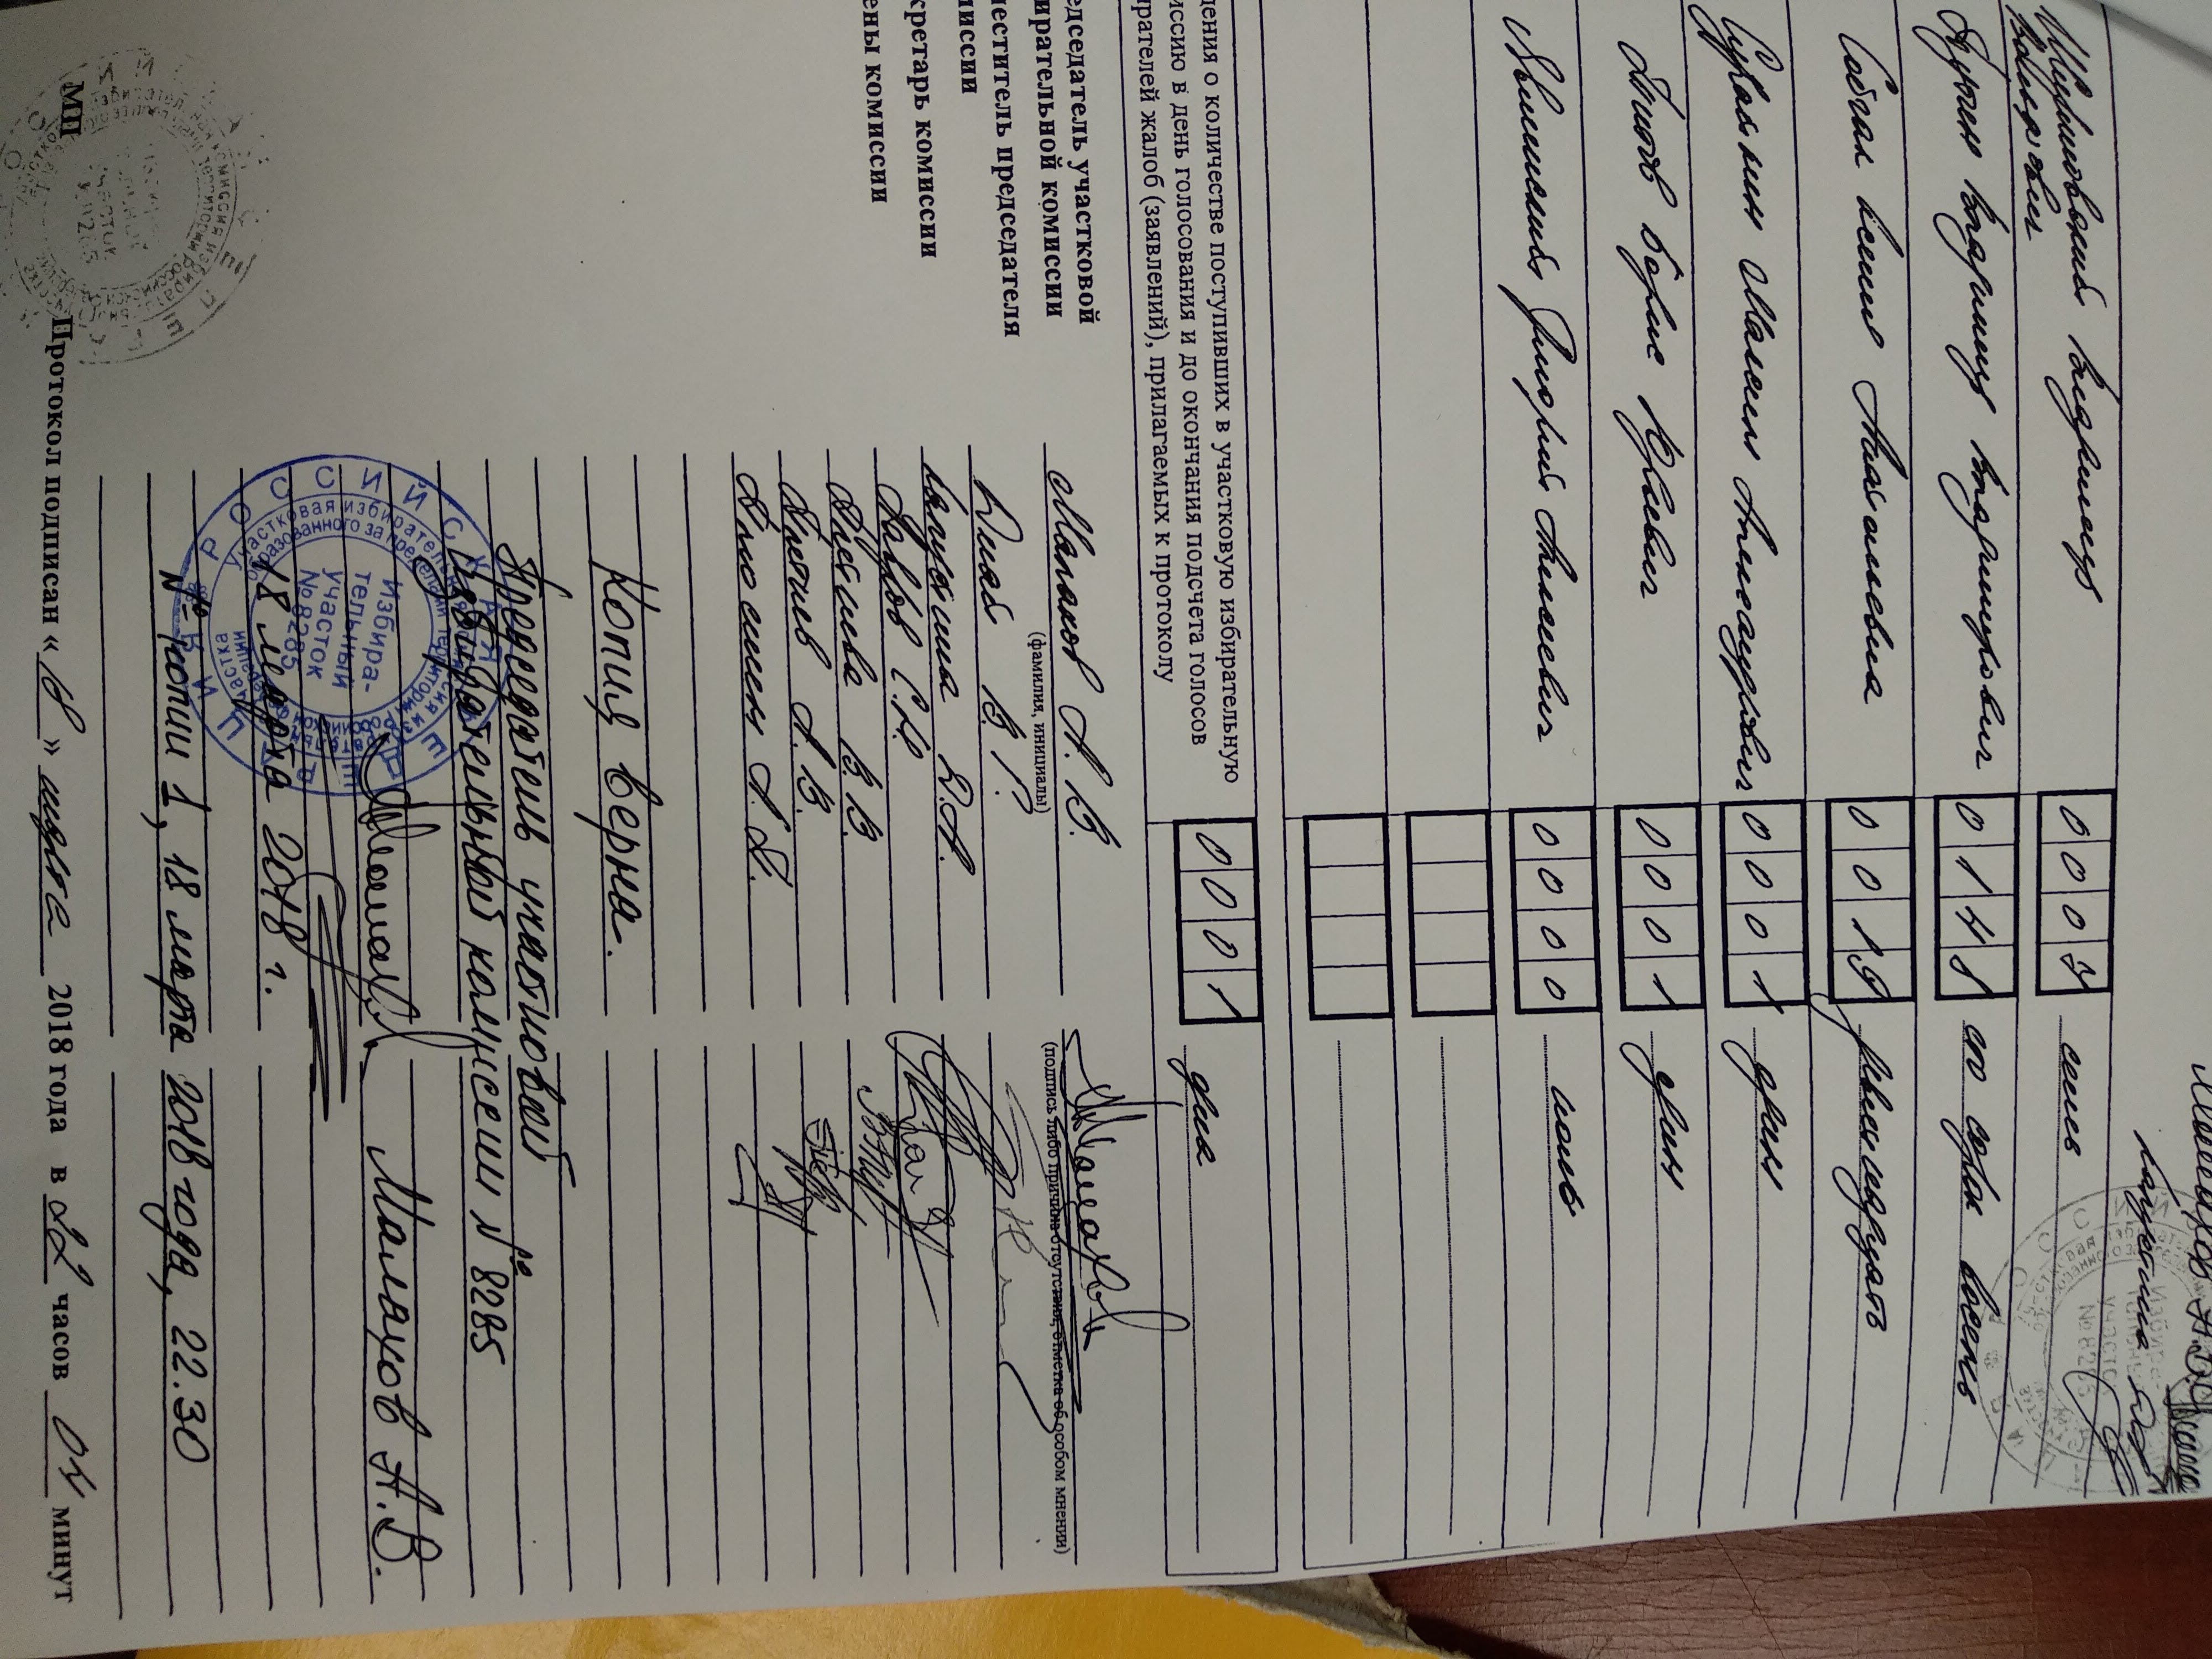 Малахов А.В.
Кащеткина Я.А.
Жириновский Владимир 0 0 0 7 семь
Вольфович
Путин Владимир Владимирович 0 1 4 8 сто сорок восемь
Собчак Ксения Анатольевна 0 0 1 9 девятнадцать
Сурайкин Максим Александрович 0 0 0 1 один
Титов Борис Юрьевич 0 0 0 1 один
Явлинский Григорий Алексеевич 0 0 0 0 ноль
дения о количестве поступивших в участковую избирательную
иссию в день голосования и до окончания подсчета голосов
ирателей жалоб (заявлений), прилагаемых к протоколу 0 0 0 1 два
едседатель участковой
ирательной комиссии Малахов А. В.
(фамилия, инициалы) (подпись либо причина отсутствия, отметка об особом мнении)
еститель председателя
миссии В. Г.
кретарь комиссии Я.А.
ены комиссии С.Ф.
В. В.
А. В.
А. А.
Копия верна.
Председатель участковой
избирательной комиссии № 8285
Малахов А.В.
18 марта 2018 г.
№ копии 1, 18 марта 2018 года, 22.30
РОССИЙСКАЯ ФЕДЕРАЦИЯ
Избира-
тельный
участок
№ 8285
МП Протокол подписан « 18 » марта 2018 года в 22 часов 04 минут